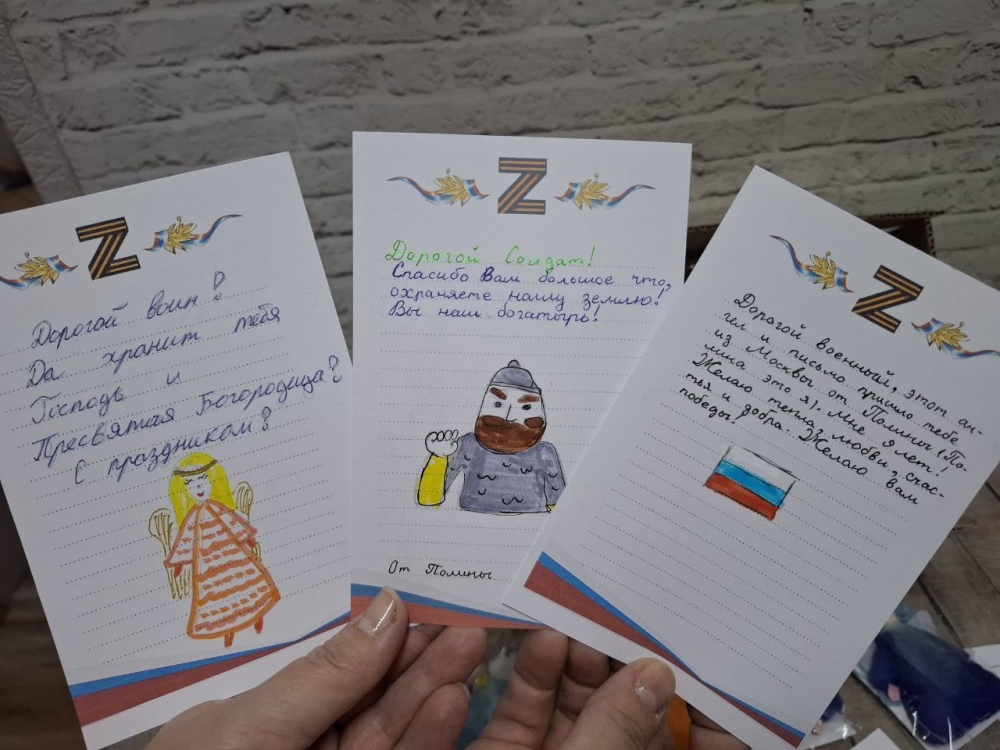 Z
Дорогой воин!
Да хранит тебя
Господь и
Пресвятая Богородица!
С праздником!
Z
Дорогой Солдат!
Спасибо Вам большое что,
охраняете нашу землю!
Вы наш богатырь!
От Полины
Z
Дорогой военный, этот ан-
гел и письмо пришло тебе
из Москвы от Полины (По-
лина это я). Мне 9 лет!
Желаю тепла, любви, счас-
тья и добра. Желаю вам
победы!